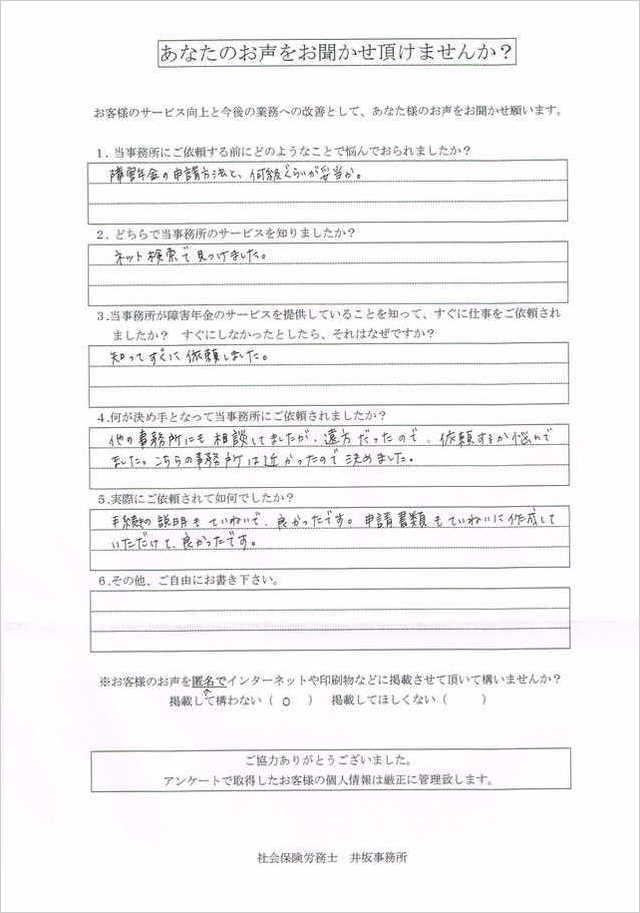 あなたのお声をお聞かせ頂けませんか？
お客様のサービス向上と今後の業務への改善として、あなた様のお声をお聞かせ願います。
1．当事務所にご依頼する前にどのようなことで悩んでおられましたか？
障害年金の申請方法と、何級ぐらいが妥当か。
2．どちらで当事務所のサービスを知りましたか？
ネット検索で見つけました。
3.当事務所が障害年金のサービスを提供していることを知って、すぐに仕事をご依頼され
ましたか？　すぐにしなかったとしたら、それはなぜですか？
知ってすぐに依頼しました。
4.何が決め手となって当事務所にご依頼されましたか？
他の事務所にも相談してましたが、遠方だったので、依頼するか悩んで
ました。こちらの事務所は近かったので決めました。
5.実際にご依頼されて如何でしたか？
手続きの説明もていねいで、良かったです。申請書類もていねいに作成して
いただけて、良かったです。
6.その他、ご自由にお書き下さい。
※お客様のお声を匿名でインターネットや印刷物などに掲載させて頂いて構いませんか？
掲載して構わない（　○　）　掲載してほしくない（　　　）
ご協力ありがとうございました。
アンケートで取得したお客様の個人情報は厳正に管理致します。
社会保険労務士　井坂事務所